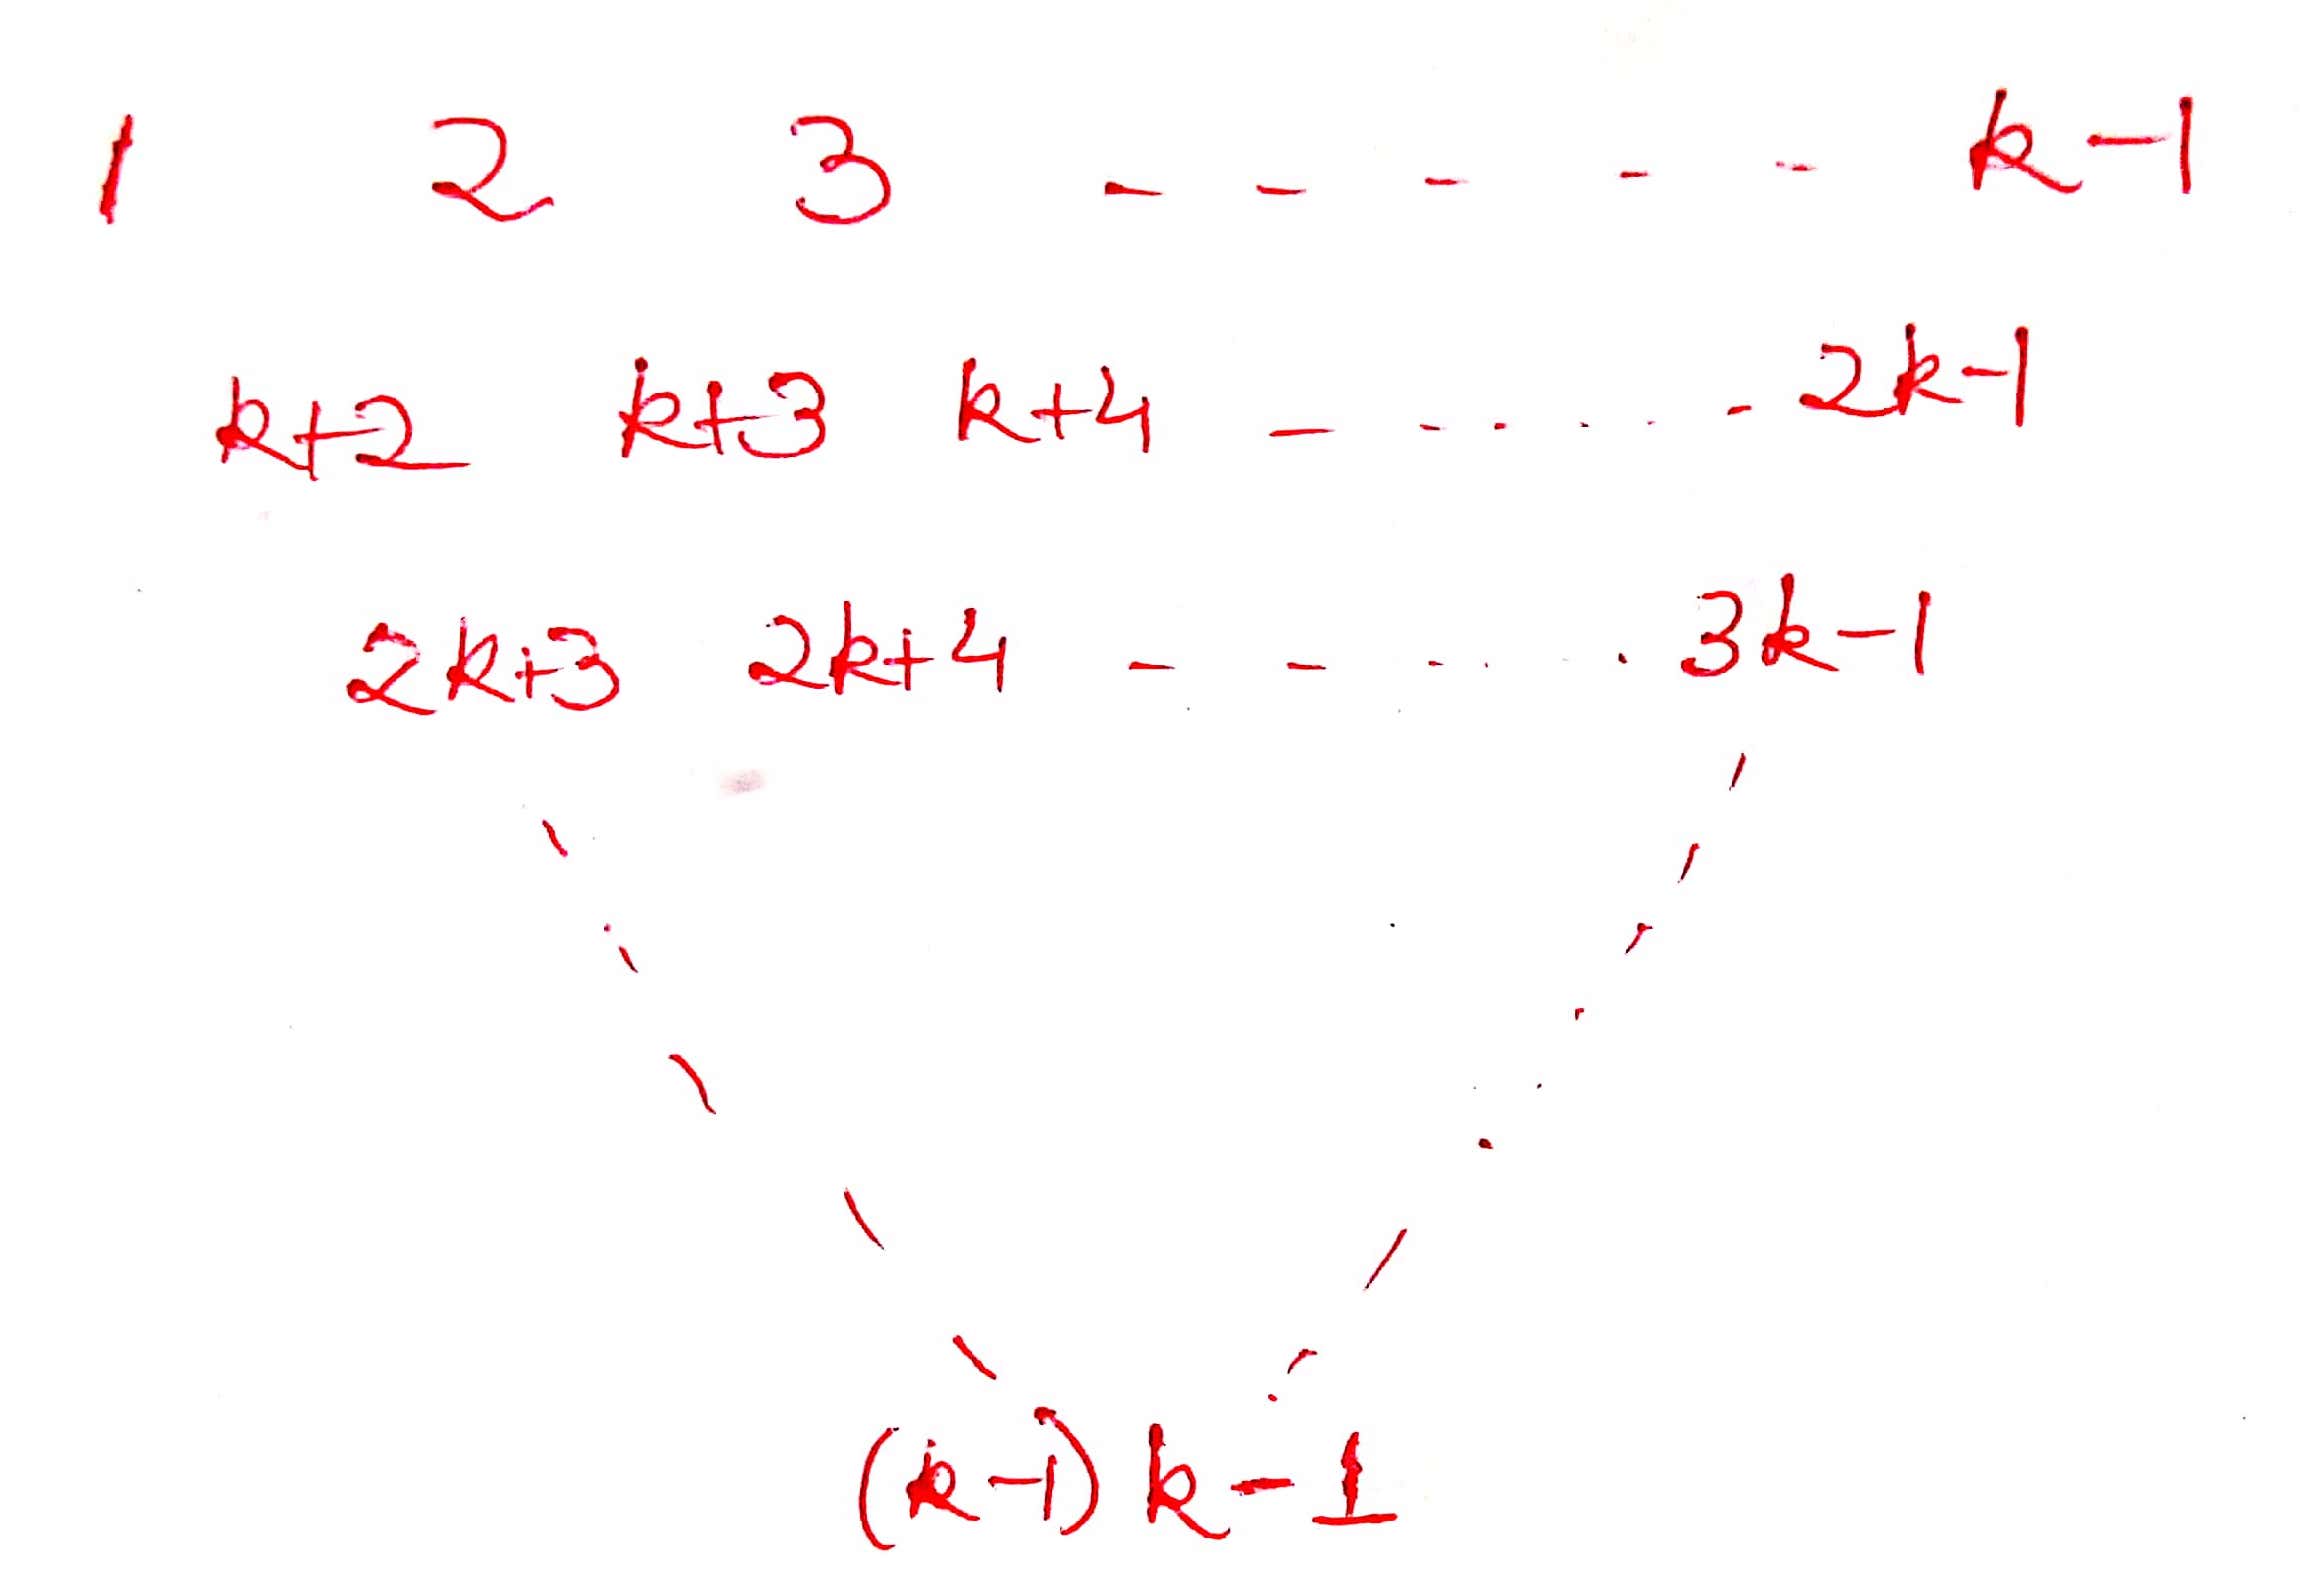 1 2 3 - - - - - k-1
k+2 k+3 k+4 - - . . . - 2k-1
2k+3 2k+4 - - - . . . 3k-1
(k-1)k-1